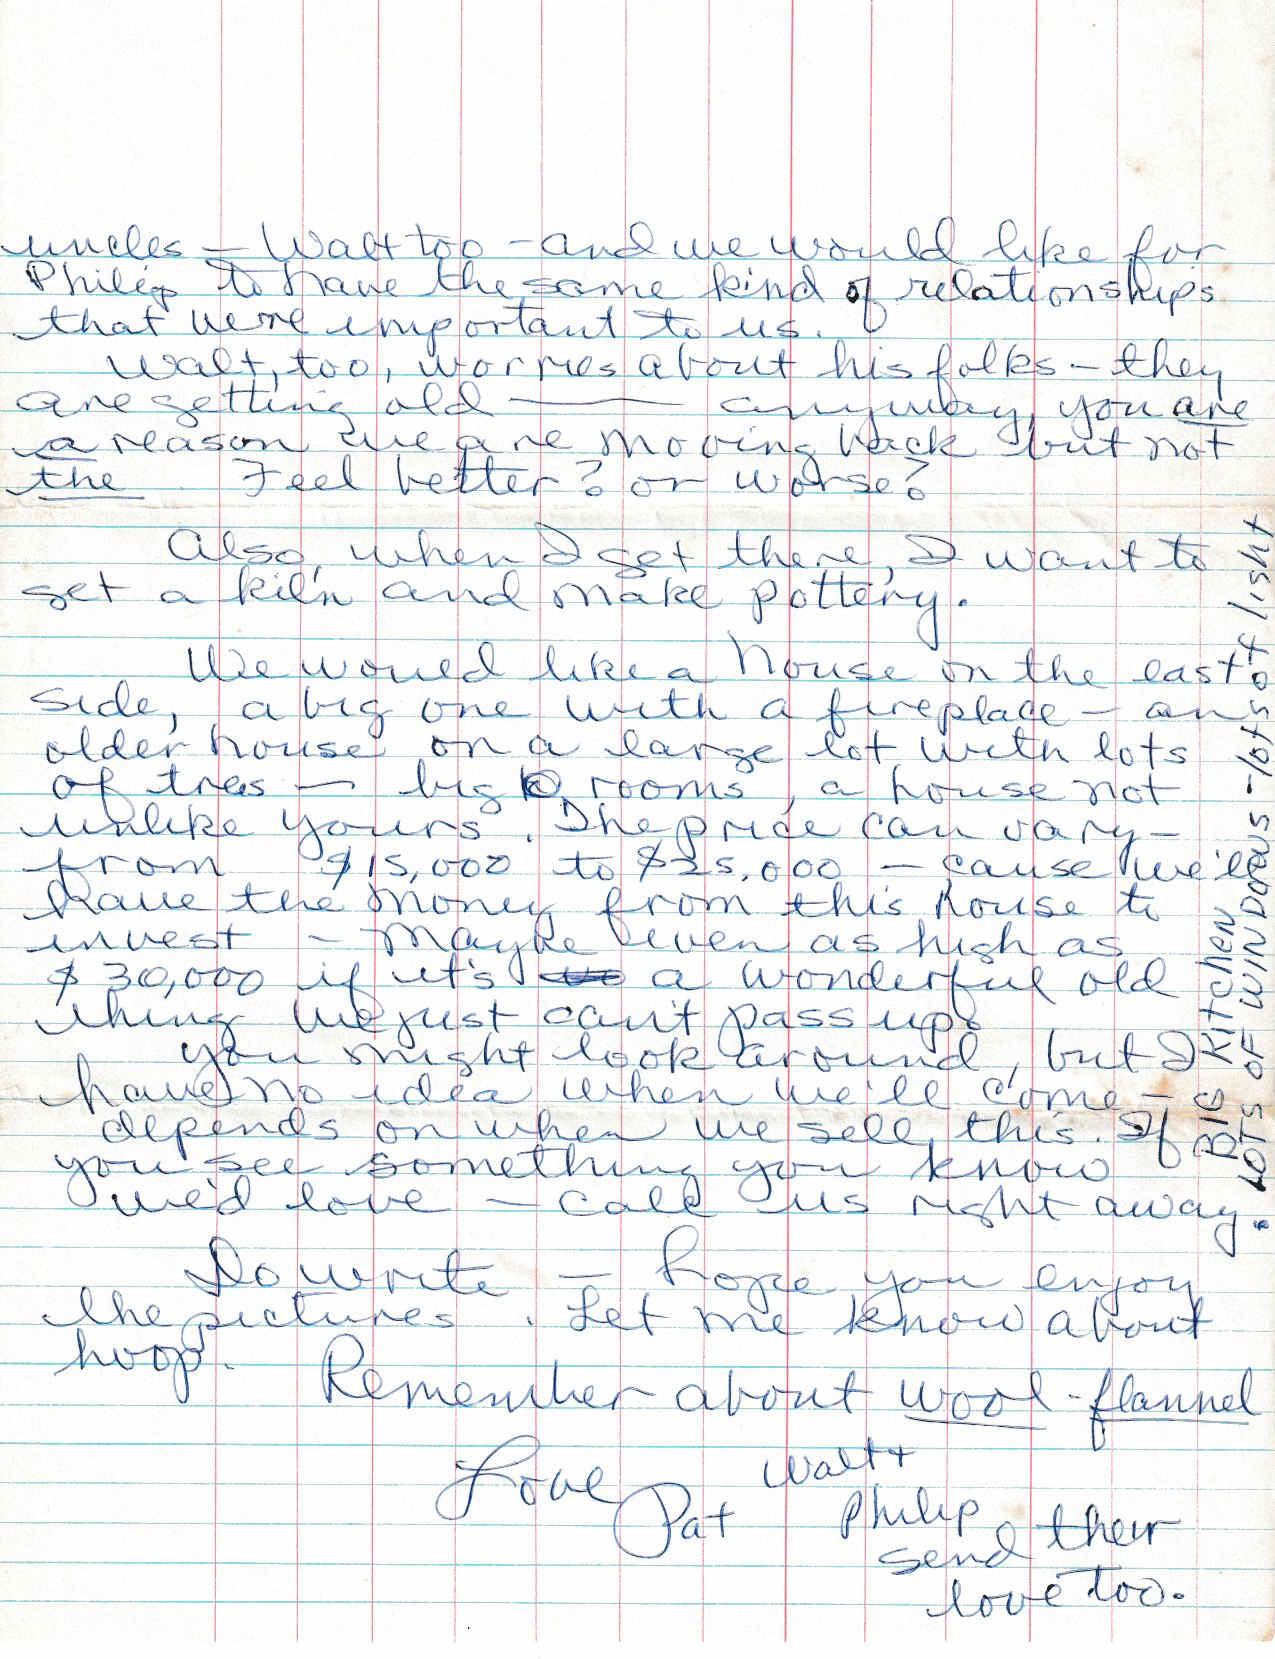 uncles - Walt too - and we would like for
Philip to have the same kind of relationships
that were important to us.
Walt, too, worries about his folks - they
are getting old —— anyway, you are
a reason we are moving back but not
the. Feel better? or worse?
Also, when I get there, I want to
get a kiln and make pottery.
We would like a house on the east
side, a big one with a fireplace - an
older house on a large lot with lots
of trees - big rooms, a house not
unlike yours. The price can vary -
from $15,000 to $25,000 - cause we'll
have the money from this house to
invest - maybe even as high as
$30,000 if it's a wonderful old
thing we just can't pass up.
You might look around, but I
have no idea when we'll come -
depends on when we sell this. If
you see something you know
we'd love - call us right away.
Do write - hope you enjoy
the pictures. Let me know about
hoop. Remember about wool-flannel
Love Walt +
Pat Philip
send their
love too.
BIG KITCHEN
LOTS OF WINDOWS - lots of light